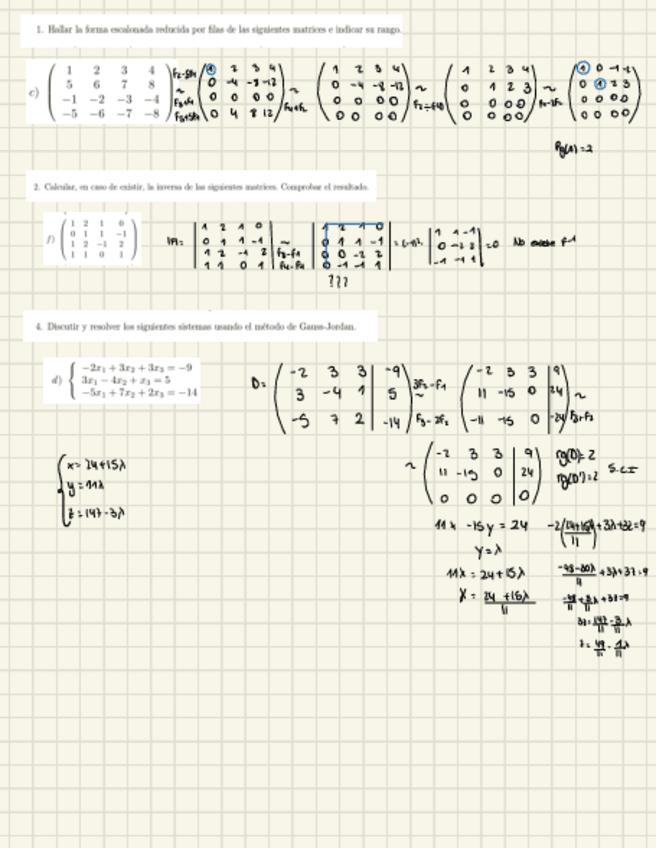 1. Hallar la forma escalonada reducida por filas de las siguientes matrices e indicar su rango.
c) ( 1 2 3 4 ; 5 6 7 8 ; -1 -2 -3 -4 ; -5 -6 -7 -8 ) ~ ( 1 2 3 4 ; 0 -4 -8 -12 ; 0 0 0 0 ; 0 4 8 12 ) ~ ( 1 2 3 4 ; 0 -4 -8 -12 ; 0 0 0 0 ; 0 0 0 0 ) ~ ( 1 2 3 4 ; 0 1 2 3 ; 0 0 0 0 ; 0 0 0 0 ) ~ ( 1 0 -1 -2 ; 0 1 2 3 ; 0 0 0 0 ; 0 0 0 0 )
Rg(A)=2
2. Calcular, en caso de existir, la inversa de las siguientes matrices. Comprobar el resultado.
f) ( 1 2 1 0 ; 0 1 1 -1 ; 1 2 -1 2 ; 1 1 0 1 ) |F|= | 1 2 1 0 ; 0 1 1 -1 ; 1 2 -1 2 ; 1 1 0 1 | ~ F3-F1 F4-F1 | 1 2 1 0 ; 0 1 1 -1 ; 0 0 -2 2 ; 0 -1 -1 1 | = | 1 1 -1 ; 0 -2 2 ; -1 -1 1 | =0 No existe F-1
???
4. Discutir y resolver los siguientes sistemas usando el método de Gauss-Jordan.
d) { -2x1 + 3x2 + 3x3 = -9
3x1 - 4x2 + x3 = 5
-5x1 + 7x2 + 2x3 = -14
D= ( -2 3 3 | -9 ; 3 -4 1 | 5 ; -5 7 2 | -14 ) 3F2-F1 ~ F3-2F2 ( -2 3 3 | 9 ; 11 -15 0 | 24 ; -11 -15 0 | -24 ) ~ F3+F2
~ ( -2 3 3 | 9 ; 11 -15 0 | 24 ; 0 0 0 | 0 ) rg(D)=2
rg(D')=2 S.C.I
x=24+15λ
y=11λ
z=147-3λ
11x -15y = 24
y=λ
11x=24+15λ
x= 24+15λ / 11